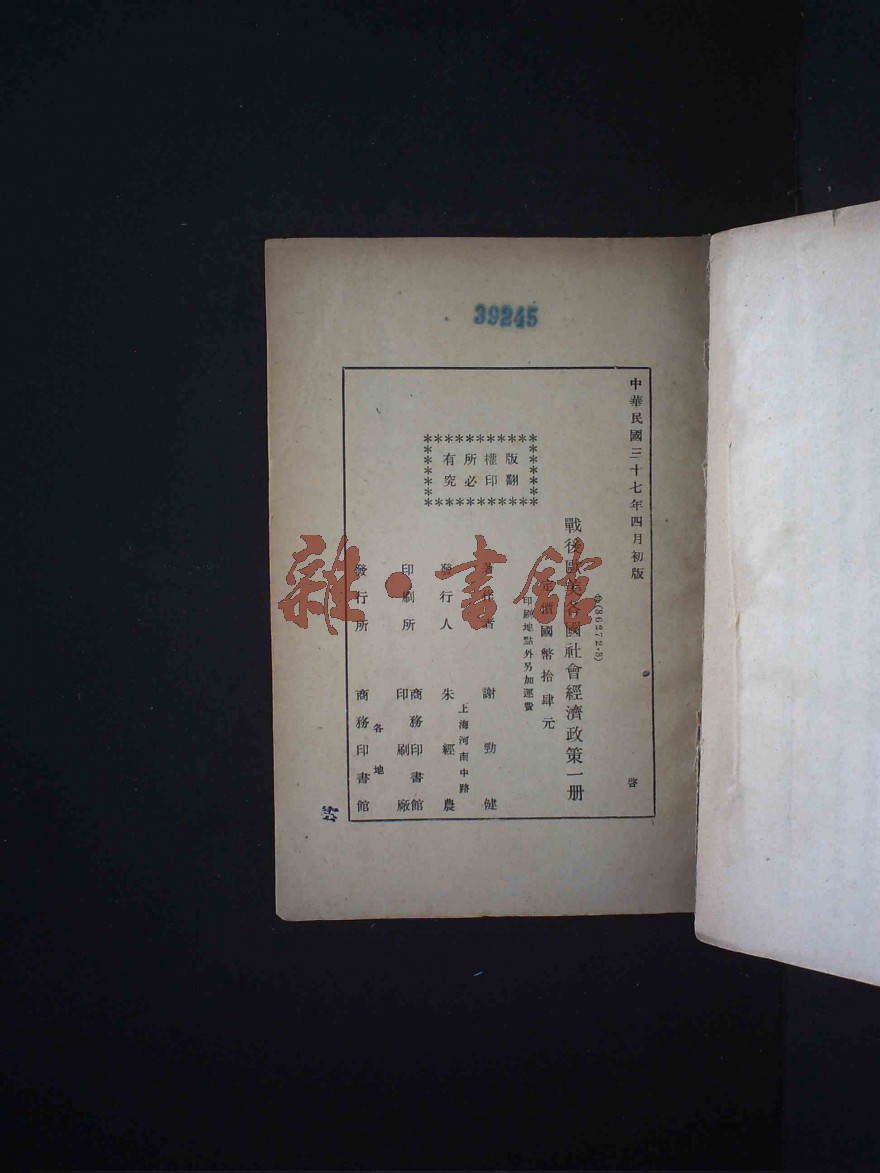 39245
中華民國三十七年四月初版
(36272·3)
戰後歐美各國社會經濟政策一册
定價國幣拾肆元
印刷地點外另加運費
版權所有
翻印必究
著作者 謝勁健
發行人 朱經農
上海河南中路
印刷所 商務印書館印刷廠
發行所 商務印書館
各地
啓
雜·書館